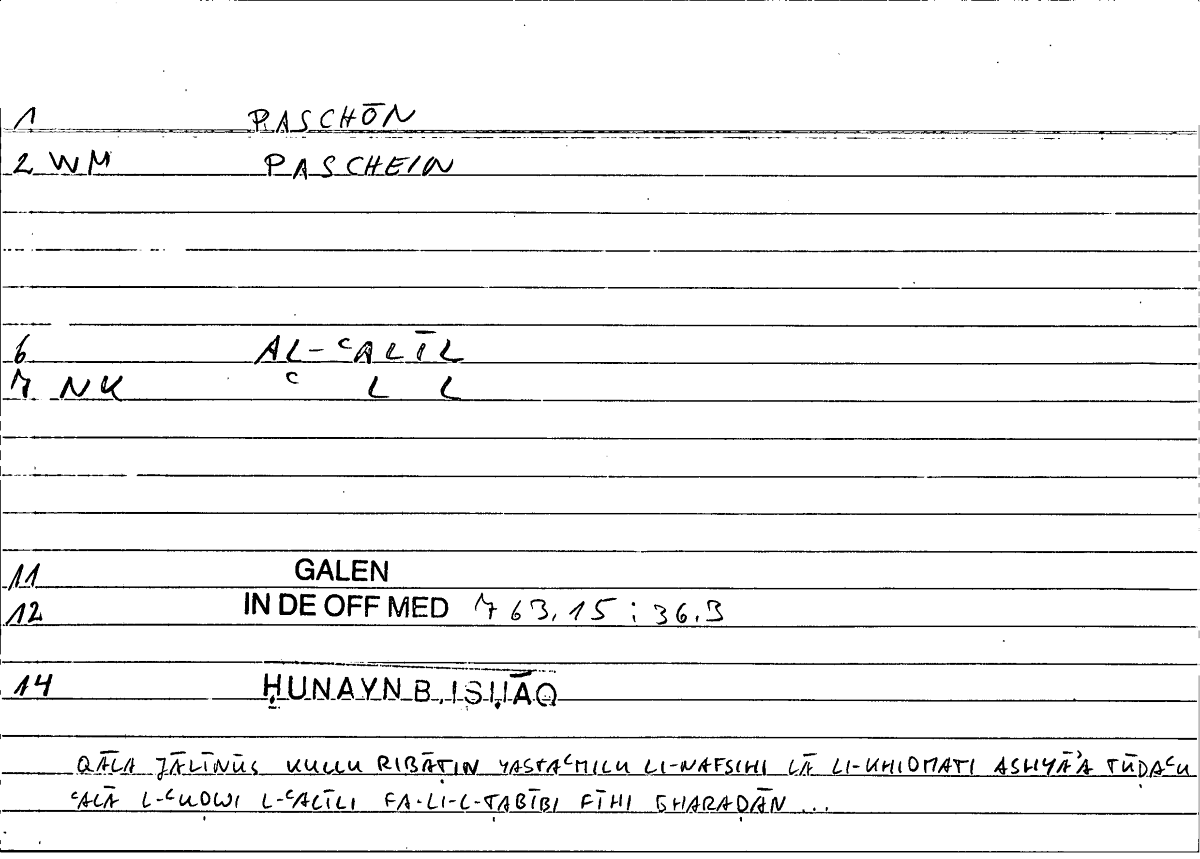 1 PASCHŌN
2 WM PASCHEIN
6 AL-ᶜALĪL
7 NK ᶜ L L
11 GALEN
12 IN DE OFF MED 763,15 : 36.3
14 ḤUNAYN B. ISḤĀQ
QĀLA JĀLĪNŪS KULLU RIBĀṬIN YASTAᶜMILU LI-NAFSIHI LĀ LI-KHIDMATI ASHYĀʾA TŪḌAᶜU
ᶜALĀ L-ᶜUḌWI L-ᶜALĪLI FA-LI-L-ṬABĪBI FĪHI GHARAḌĀN ...